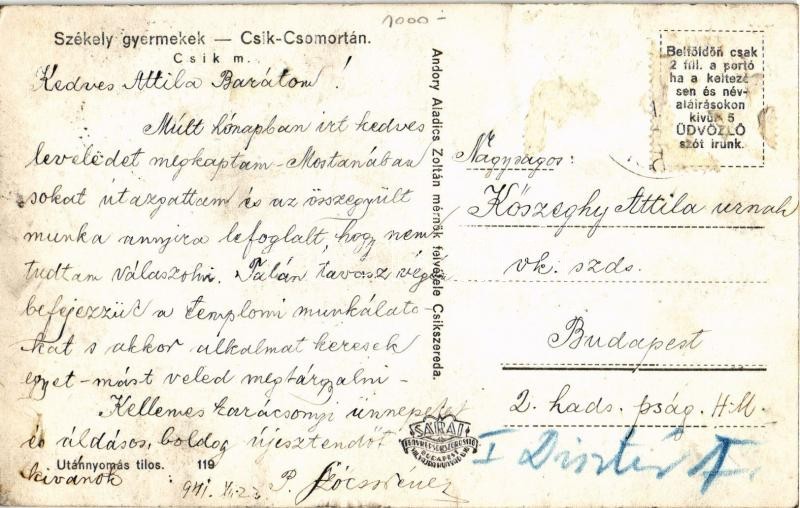 1000-
Székely gyermekek — Csik-Csomortán.
Csik m.
Kedves Attila Barátom!
Múlt hónapban irt kedves
leveledet megkaptam - Mostanában
sokat útazgattam és az összegyült
munka annyira lefoglalt, hogy nem
tudtam válaszolni. Talán tavasz végén
befejezzük a templomi munkálato-
kat s akkor alkalmat keresek
egyet-mást veled megtárgyalni -
Kellemes karácsonyi ünnepeket
és áldásos, boldog újesztendőt
kivánok
Utánnyomás tilos. 119
941. XII. 22.
P.
Andory Aladics Zoltán mérnök felvétele Csikszereda.
SÁRAI
BUDAPEST
Belföldön csak
2 fill. a portó
ha a keltezé
sen és név-
aláirásokon
kivül 5
ÜDVÖZLŐ
szót irunk.
Nagyságos:
Kőszeghy Attila urnak
vk. szds.
Budapest
2. hads. pság. H.M.
I